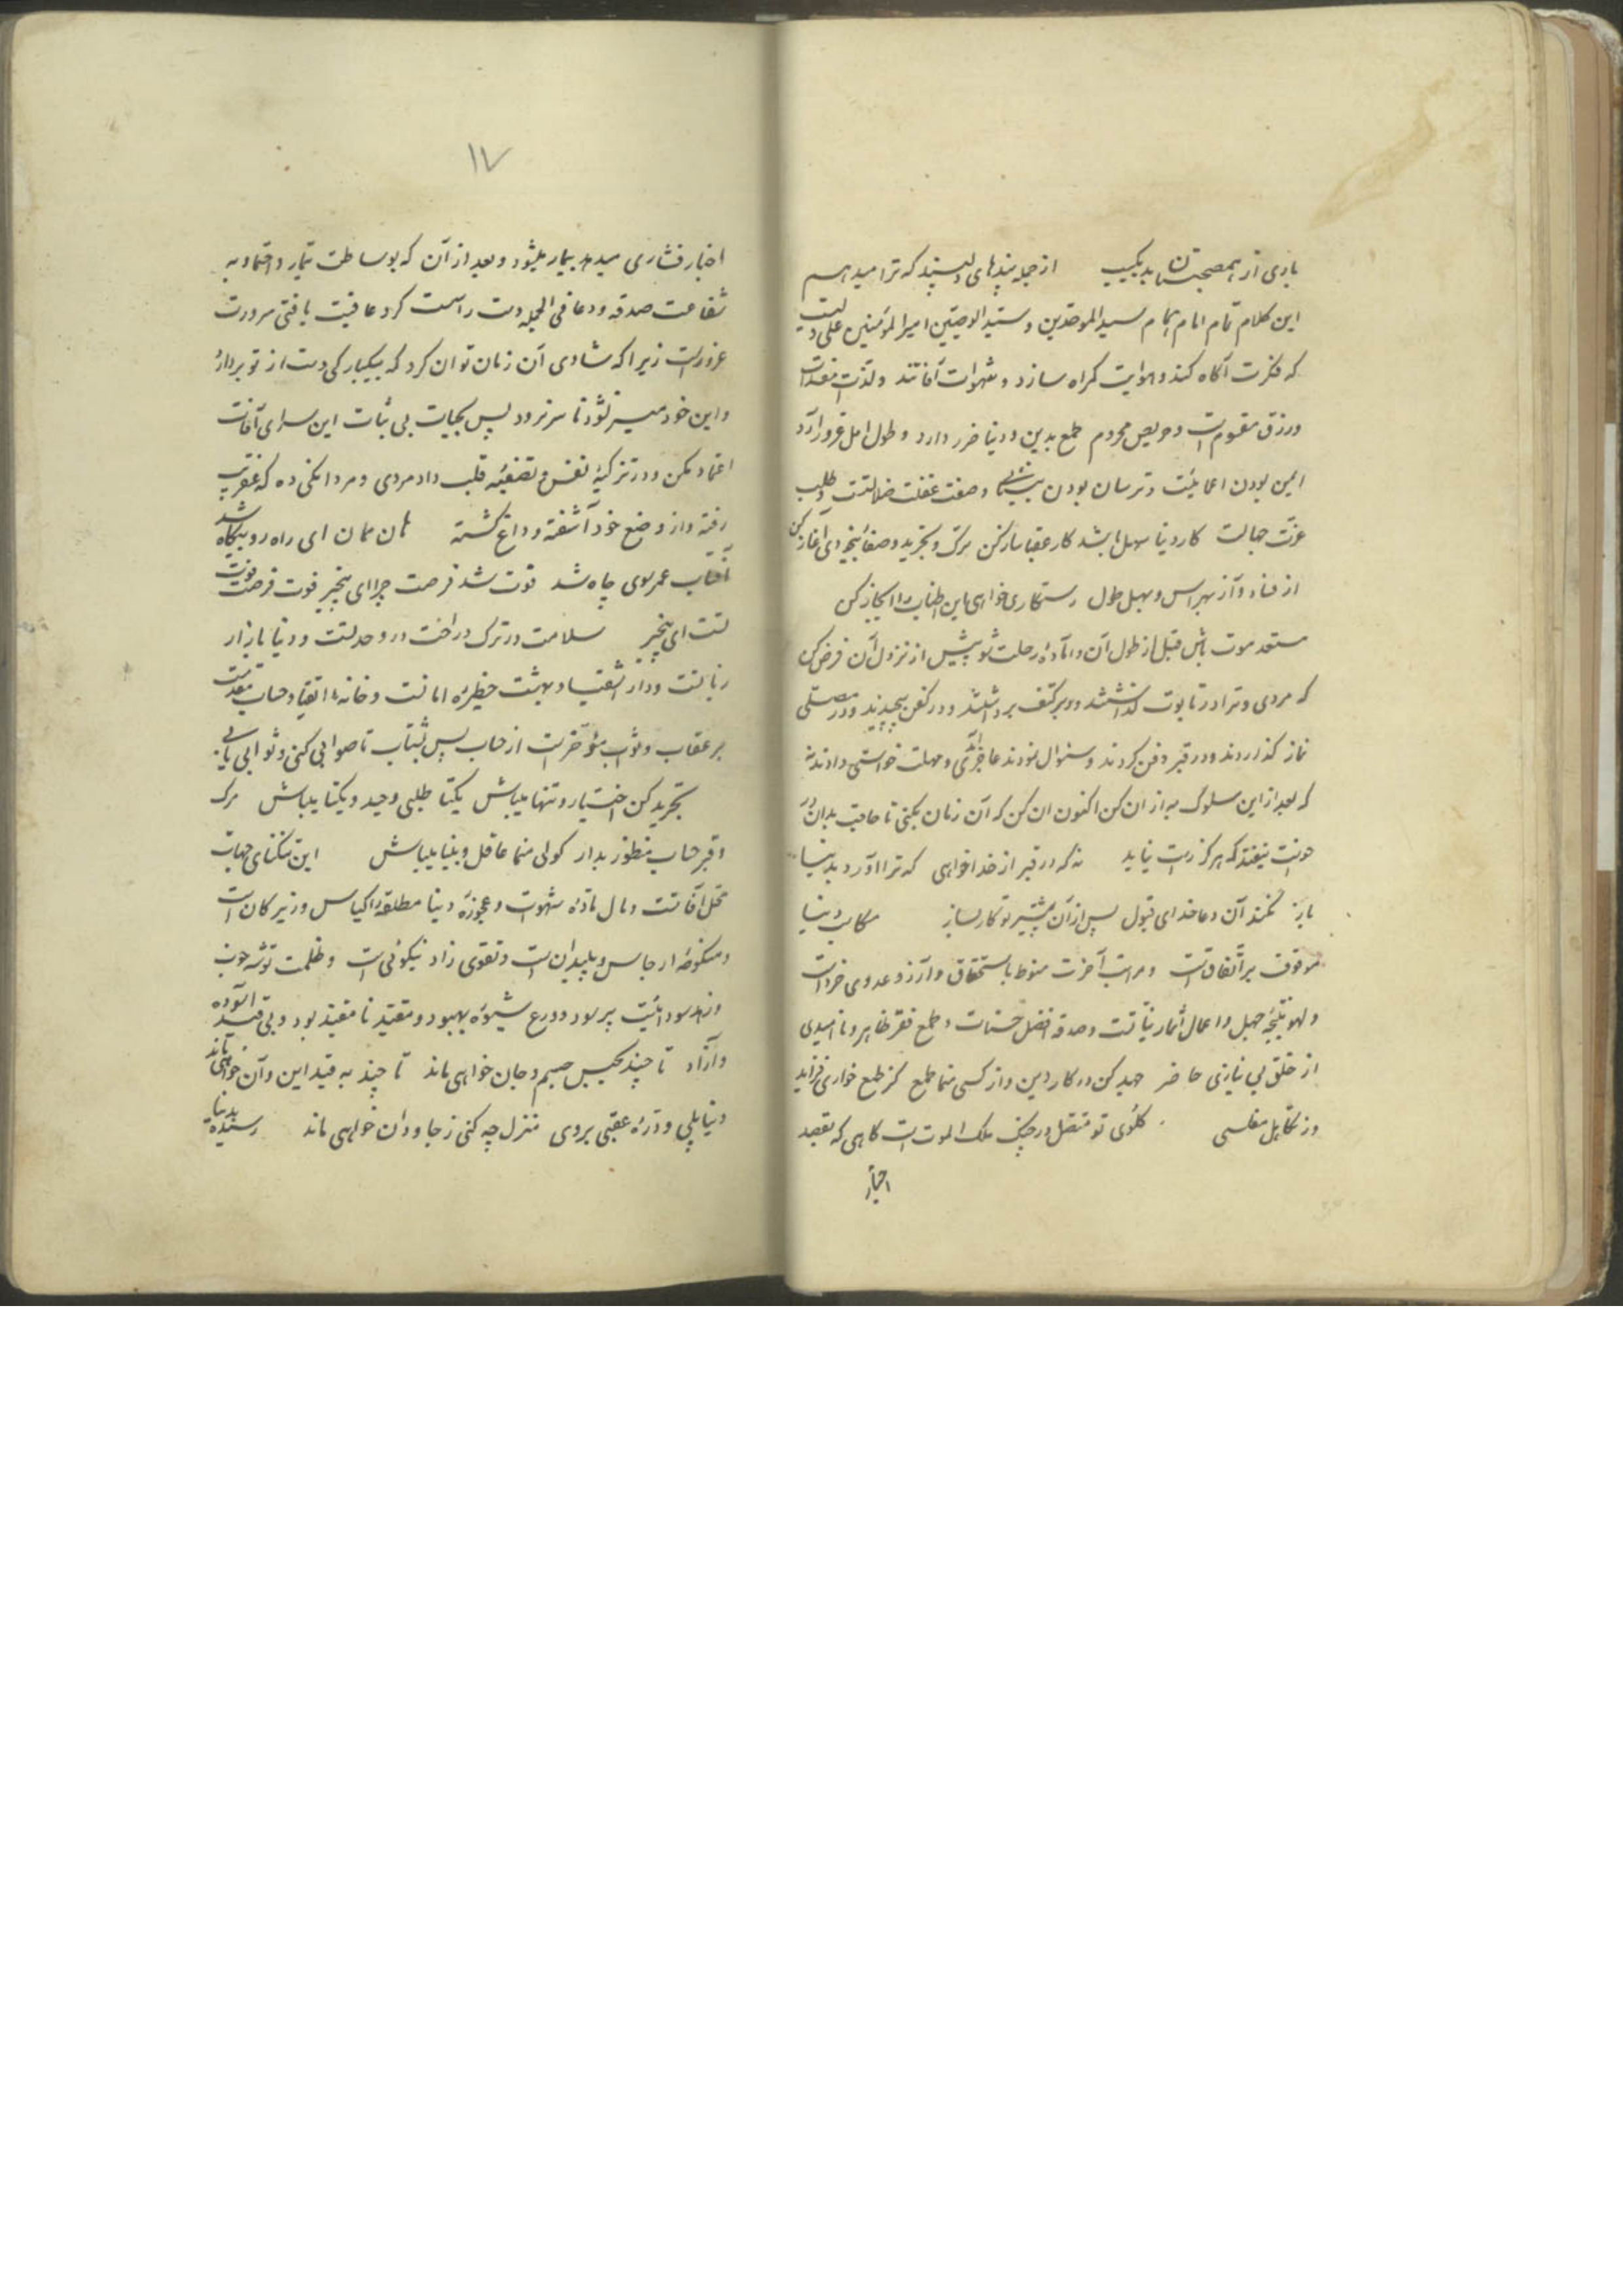 یاری از همصحبتان بد بکیب از جمله پندهای دلپسند که ترا میدهم
این کلام تمام امام همام سید الموحدین و سید الوصیین امیر المؤمنین علی ولیت
که فکرت آکاه کند و هوایت کمراه سازد و شهوات آفاتند و لذت مفسدات
و رزق مقسوم است و حریص محروم طمع بدین و دنیا ضرر دارد و طول امل غرور آرد
ایمن بودن و ترسان بودن و صفت غفلت ضلالتست و طلب
عزت جهالت کار دنیا سهل باشد کار عقبا ساز کن ترک و تجرید و صفا آغاز کن
از فنا و آز بهراس و بهل طول رستکاری خواهی این اطناب را ایجاز کن
مستعد موت باش قبل از طول آن و آماده رحلت شو پیش از نزول آن فرض کن
که مردی و ترا در تابوت کذاشتند و بر کتف برداشتند و در کفن پیچیدند و در مصلی
نماز کذاردند و در قبر دفن کردند و سئوال نمودند عاجز ماندی و مهلت خواستی دادند نه
که بعد از این سلوک به از آن کن اکنون آن کن که آن زمان بکنی تا حاجت بدان در
خواست نیفتد که هرکز راست نیاید نه که در قبر از خدا خواهی که ترا آورد بدنیا
باز نکند آن دعا خدای قبول پس از آن پیشتر تو کار بساز مکاسب دنیا
موقوف بر اتفاق است و مراتب آخرت منوط باستحقاق و آرزو عدوی خرد است
و لهو نتیجه جهل و اعمال اثمار نیاتست و صدقه افضل حسنات و طمع فقر ظاهر و ناامیدی
از خلق بی نیازی حاضر جهد کن در کار دین و از کسی منما طمع کز طمع خواری فزاید
وز تکاهل مفلسی کلوی تو متصل در چنک ملک الموت است کاهی که بقصد
اخبار
۱۷
اخبار فشاری میدهد بیمار میشود و بعد از آن که بوساطت تیمار و احتما و به
شفاعت صدقه و دعا فی الجمله دست راست کرد عافیت یافتی سرورت
غرور است زیرا که شادی آن زمان توان کرد که بیکبارکی دست از تو بردارد
و این خود میسر نشود تا سر نرود پس بحیات بی ثبات این سرای آفات
اعتماد مکن و در تزکیه نفس و تصفیه قلب داد مردی و مردانکی ده که عنقریب
رفته و از وضع خود آشفته و داغ کشته هان همان ای راه رو بیکاه شد
آفتاب عمر سوی چاه شد فوت شد فرصت چرا ای بیخبر فوت فرصت موت
تست ای بیخبر سلامت در ترک و راحت در وحدتست و دنیا بازار
زیانست و دار اشقیا و بهشت حظیره امانست و خانه اتقیا و حساب مقدمست
بر عقاب و ثواب مؤخر است از حساب پس بشتاب تا صوابی کنی و ثوابی یابی
تجرید کن اختیار و تنها میباش یکتا طلبی وحید و یکتا میباش مرک
و قبر و حساب منظور بدار کولی منما عاقل و بینا میباش این تنکنای جهات
محل آفاتست و مال ماده شهوت و عجوزه دنیا مطلقه اکیاس و زیرکان است
و منکوحه ارجاس و پلیدان است و تقوی زاد نیکوئی است و ظلمت توشه
و زهد سود است پر سود و ورع شیوه بهبود و مقید تا مقید بود و بی قید آسوده
و آزاد تا چند بحبس جسم و جان خواهی ماند تا چند به قید این و آن خواهی ماند
دنیا پلی و تو ره عقبی بروی منزل چه کنی ز جاودان خواهی ماند رسیده بدنیا